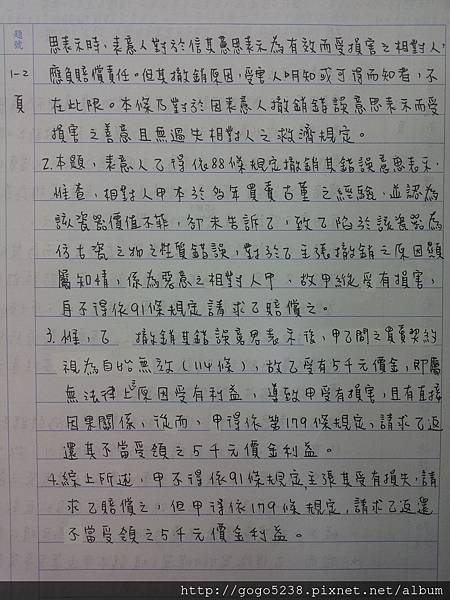 題號
1-2
頁
思表示時，表意人對於信其意思表示為有效而受損害之相對人，
應負賠償責任。但其撤銷原因，受害人明知或可得而知者，不
在此限。本條乃對於因表意人撤銷錯誤意思表示而受
損害之善意且無過失相對人之救濟規定。
2.本題，表意人乙得依88條規定撤銷其錯誤意思表示，
惟查，相對人甲本於多年買賣古董之經驗，並認為
該瓷器價值不菲，卻未告訴乙，致乙陷於該瓷器為
仿古瓷之物之性質錯誤，對於乙主張撤銷之原因顯
屬知情，係為惡意之相對人甲，故甲縱受有損害，
自不得依91條規定請求乙賠償之。
3.惟，乙 撤銷其錯誤意思表示後，甲乙間之買賣契約
視為自始無效（114條），故乙受有5千元價金，即屬
無法律上之原因受有利益，導致甲受有損害，且有直接
因果關係，從而，甲得依第179條規定，請求乙返
還其不當受領之5千元價金利益。
4.綜上所述，甲不得依91條規定，主張其受有損失，請
求乙賠償之，但甲得依179條規定，請求乙返還
不當受領之5千元價金利益。
http://gogo5238.pixnet.net/album